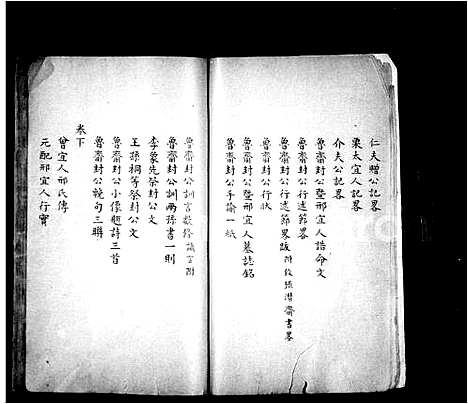 仁夫贈公記畧
栗太宜人記畧
介夫公記畧
魯齋封公暨邢宜人誥命文
魯齋封公行述節畧
魯齋封公行述節畧跋附後張潛齋書畧
魯齋封公行狀
魯齋封公暨邢宜人墓誌銘
魯齋封公手諭一紙
魯齋封公訓言數條識言附
魯齋封公訓兩孫書一則
李蒙先祭封公文
王孫桐等祭封公文
魯齋封公小像題詩三首
魯齋封公輓句三聯
卷下
曾宜人祁氏傳
元配邢宜人行實